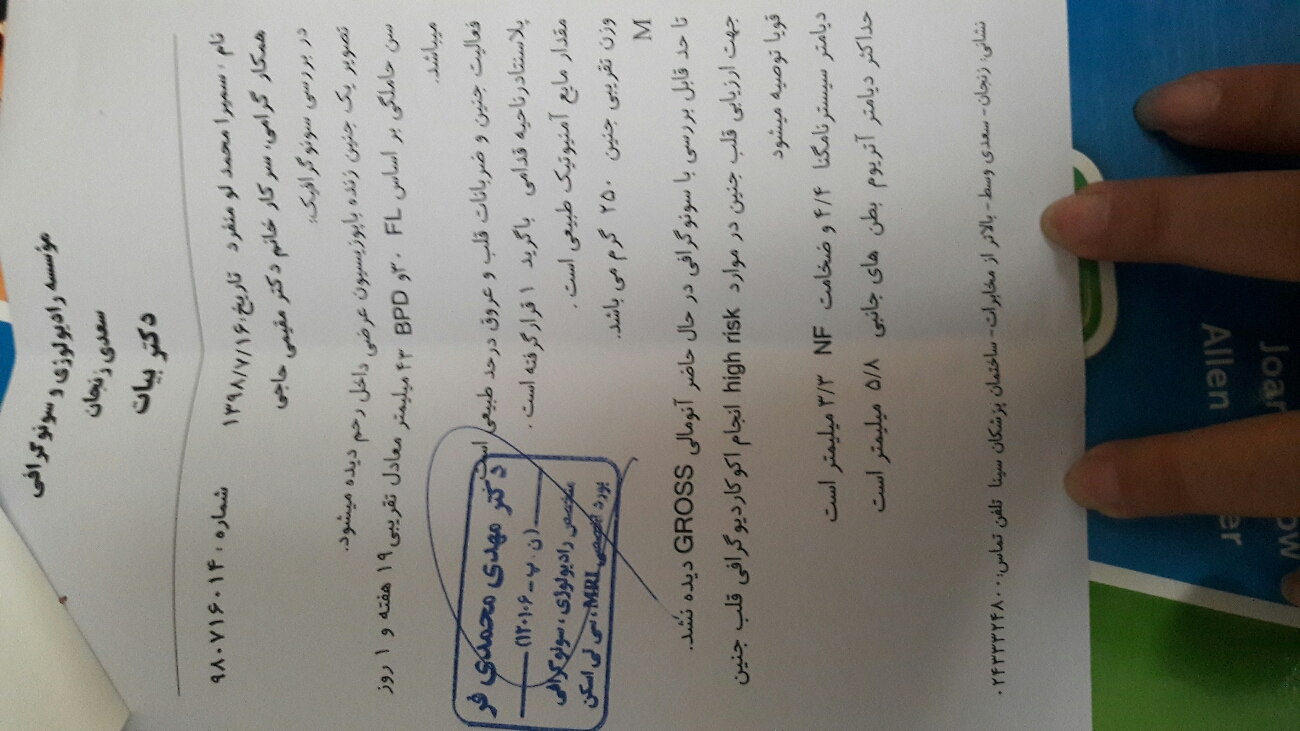 موسسه رادیولوژی و سونوگرافی
سعدی زنجان
دکتر بیات
نام : سمیرا محمد لو منفرد تاریخ:۱۳۹۸/۷/۱۶ شماره : ۹۸۰۷۱۶۰۱۴
همکار گرامی سرکار خانم دکتر مقیمی حاجی
در بررسی سونوگرافیک:
تصویر یک جنین زنده باپوزیسیون عرضی داخل رحم دیده میشود.
سن حاملگی بر اساس FL ۳۰ و BPD ۴۳ میلیمتر معادل تقریبی ۱۹ هفته و ۱ روز
میباشد.
فعالیت جنین و ضربانات قلب و عروق درحد طبیعی است
پلاسنتادرناحیه قدامی باگرید ۱ قرارگرفته است .
مقدار مایع آمنیوتیک طبیعی است .
وزن تقریبی جنین ۲۵۰ گرم می باشد.
M
تا حد قابل بررسی با سونوگرافی در حال حاضر آنومالی GROSS دیده نشد.
جهت ارزیابی قلب جنین در موارد high risk انجام اکوکاردیوگرافی قلب جنین
قویا توصیه میشود
دیامتر سیسترنامگنا ۴/۴ و ضخامت NF ۳/۳ میلیمتر است
حداکثر دیامتر آتریوم بطن های جانبی ۵/۸ میلیمتر است
دکتر مهدی محمدی فر
(ن . پ - ۱۲۰۱۰۶)
متخصص رادیولوژی ، سونوگرافی
MRI ، سی تی اسکن
بورد تخصصی
نشانی: زنجان- سعدی وسط- بالاتر از مخابرات- ساختمان پزشکان سینا تلفن تماس: ۰۲۴۳۳۳۲۴۸۰۰
Allen